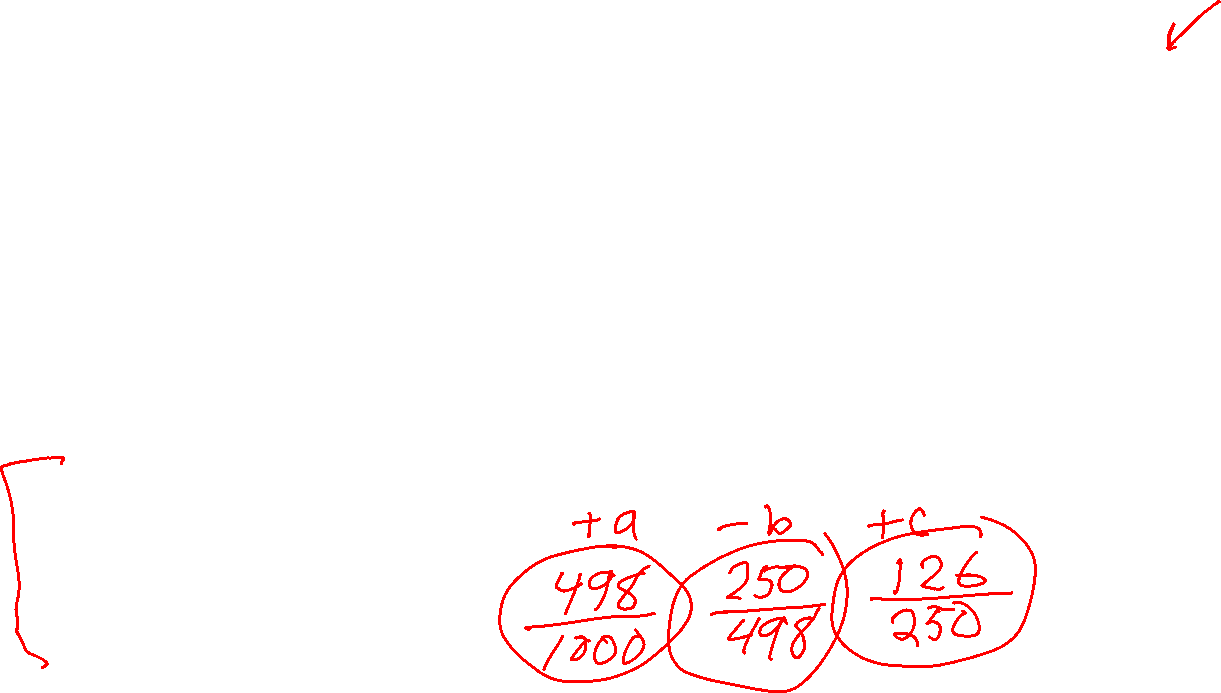 +a -b +c
498/1000 250/498 126/250